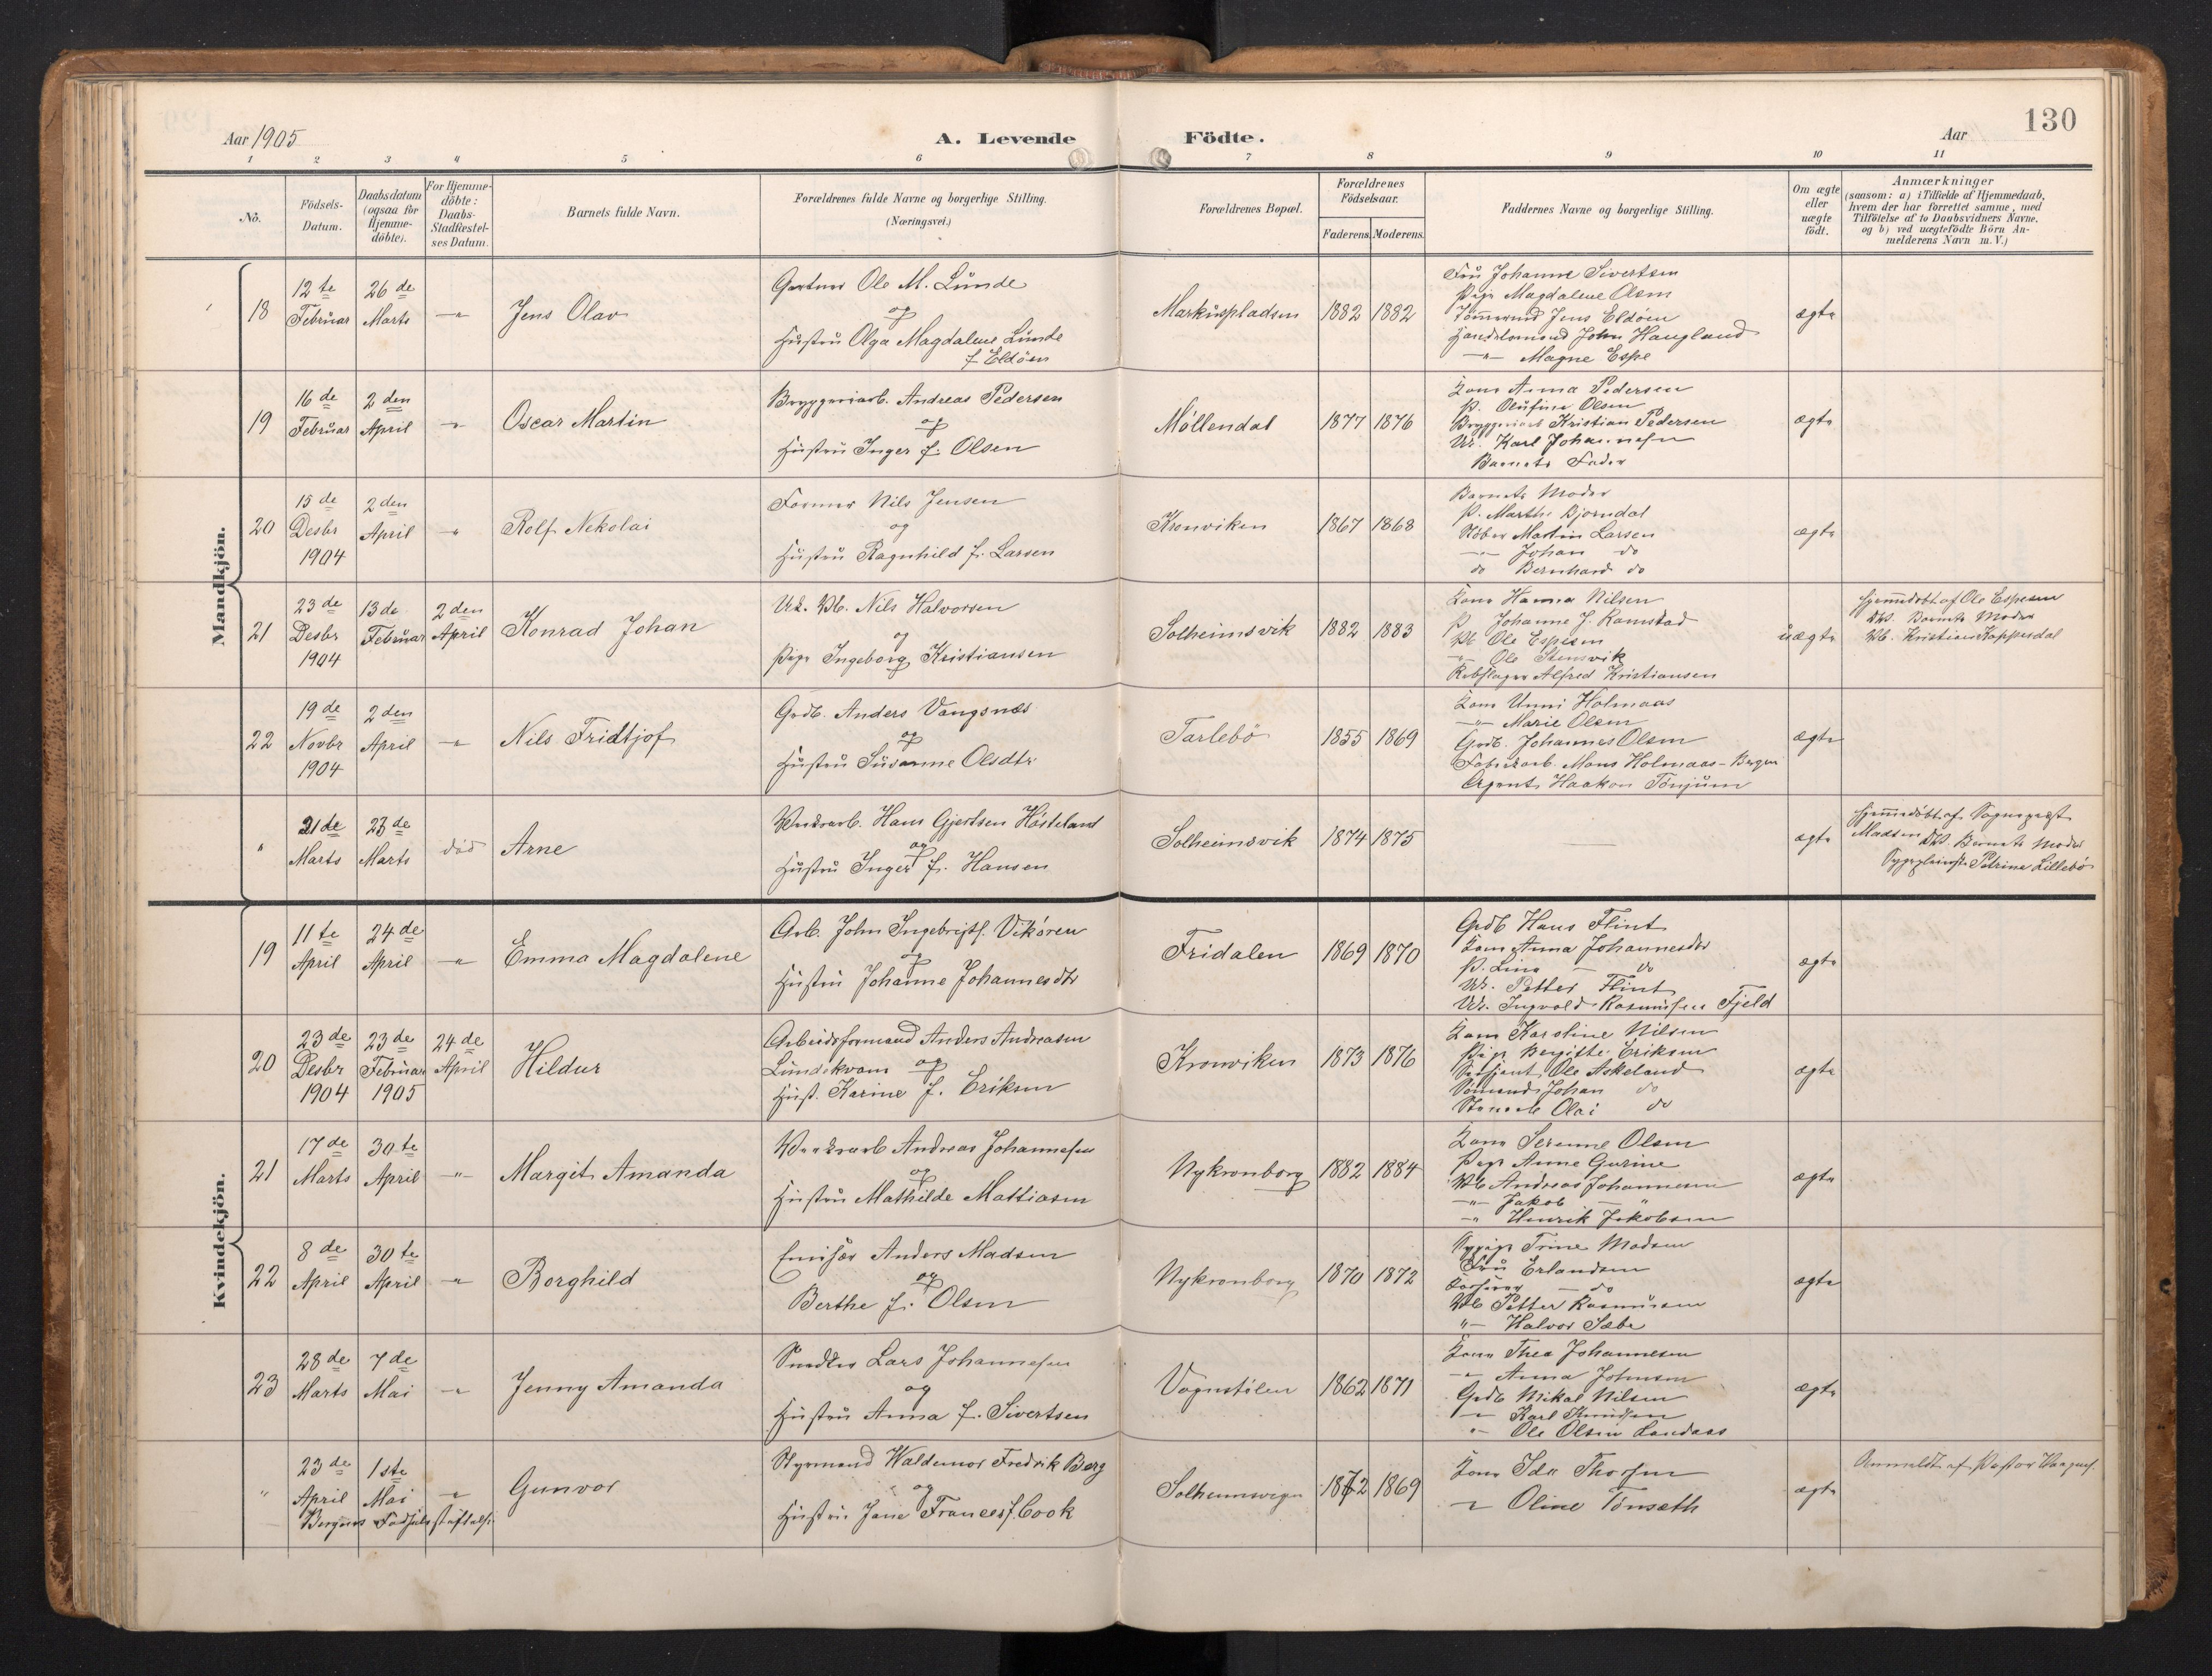 Aar 1905
A. Levende Födte.
Aar
130
1 2 3 4 5 6 7 8 9 10 11
No.
Födsels-
Datum.
Daabsdatum
(ogsaa for
Hjemme-
döbte).
For Hjemme-
döbte:
Daabs-
Stadfæstel-
ses Datum.
Barnets fulde Navn.
Forældrenes fulde Navne og borgerlige Stilling.
(Næringsvei.)
Forældrenes Bopæl.
Forældrenes
Födselsaar.
Faderens.
Moderens.
Faddernes Navne og borgerlige Stilling.
Om ægte
eller
uægte
födt.
Anmærkninger
(saasom: a) i Tilfælde af Hjemmedaab,
hvem der har forrettet samme, med
Tilföielse af to Daabsvidners Navne.
og b) ved uægtefödte Börn An-
melderens Navn m. V.)
Mandkjön.
18
12te
Februar
26de
Marts
-"-
Jens Olav
Gartner Ole M. Lunde
og
Hustru Olga Magdalene Lunde
f. Eldöen
Markuspladsen
1882
1882
Fru Johanne Sivertsen
Pige Magdalene Olsen
Tömmermd Jens Eldöen
Handelsmand John Haugland
-"- Magne Espe
ægte
19
16de
Februar
2den
April
-"-
Oscar Martin
Bryggeriarb. Andreas Pedersen
og
Hustru Inger f. Olsen
Möllendal
1877
1876
Kone Anna Pedersen
P. Olufine Olsen
Bryggeriarb Kristian Pedersen
Uk. Karl Johannesen
Barnets Fader
ægte
20
15de
Desbr
1904
2den
April
"
Rolf Nekolai
Former Nils Jensen
og
Hustru Ragnhild f. Larsen
Kronviken
1867
1868
Barnets Moder
P. Marthe Bjorndal
Stöber Martin Larsen
-"- Johan do
do Bernhard do
ægte
21
23de
Desbr
1904
13de
Februar
2den
April
Konrad Johan
Uk. Vb. Nils Halvorsen
og
Pige Ingeborg Kristiansen
Solheimsvik
1882
1883
Kone Hanna Nilsen
P. Johanne J. Ramstad
Vb Ole Espesen
-"- Ole Stensvik
Rebslager Alfred Kristiansen
uægte
Hjemmedöbt af Ole Espesen
DV. Barnets Moder
Vb. Kristian Koppesdal
22
19de
Novbr
1904
2den
April
-"-
Nils Fridtjof
Grdb. Anders Vangsnes
og
Hustru Susanne Olsdtr
Tarlebö
1855
1869
Kone Unni Holmaas
-"- Marie Olsen
Grdb. Johannes Olsen
Fabrikarb. Mons Holmaas - Bergen
Agent Haakon Tönjum
ægte
"
21de
Marts
23de
Marts
död
Arne
Verksarb. Hans Gjertsen Hösteland
og
Hustru Inger f. Hansen
Solheimsvik
1874
1875
ægte
Hjemmedöbt af Sognepræst
Madsen DV. Barnets Moder
Sygepleierske Petrine Lillebö
Kvindekjön.
19
11te
April
24de
April
-"-
Emma Magdalene
Arb. John Ingebrigts. Vikören
og
Hustru Johanne Johannesdtr
Fridalen
1869
1870
Grdb Hans Flint
Kone Anna Johannesdtr
P. Lina - do
Uk. Petter Flint
Uk. Ingvald Rasmussen Fjeld
ægte
20
23de
Desbr
1904
23de
Februar
1905
24de
April
Hildur
Arbeidsformand Anders Andreasen
Lundekvam og
Hust. Karine f. Eriksen
Kronviken
1873
1876
Kone Karoline Nilsen
Pige Bergitte Eriksen
Sersjant Ole Askeland
Sömand Johan do
Stenarb Olai do
ægte
21
17de
Marts
30te
April
-"-
Margit Amanda
Verksarb Andreas Johannesen
og
Hustru Mathilde Mattiasen
Nykronborg
1882
1884
Kone Serenne Olsen
Pige Anne Gurine
Vb Andreas Johannesen
-"- Jakob - "
-"- Henrik Jakobsen
ægte
22
8de
April
30te
April
-"-
Borghild
Emisær Anders Madsen
og
Berthe f. Olsen
Nykronborg
1870
1872
Trine Madsen
Fru Erlandsen
- do
Vb Petter Rasmussen
"- Halvor Sæbe
ægte
23
28de
Marts
7de
Mai
-"-
Jenny Amanda
Snedker Lars Johannesen
og
Hustru Anna f. Sivertsen
Vognstölen
1862
1871
Kone Thea Johannesen
-"- Anna Johnsen
Grdb Mikal Nilsen
-"- Karl Knudsen
"- Ole Olsen Landaas
ægte
"
23de
April
1ste
Mai
-"-
Bergens Födselsstiftelse
Gunvor
Styrmand Waldemar Fredrik Berg
og
Hustru Jane Frances f. Cook
Solheimsvegen
1872
1869
Kone Ida Thorsen
-"- Oline Tönseth
ægte
Anmeldt af Pastor